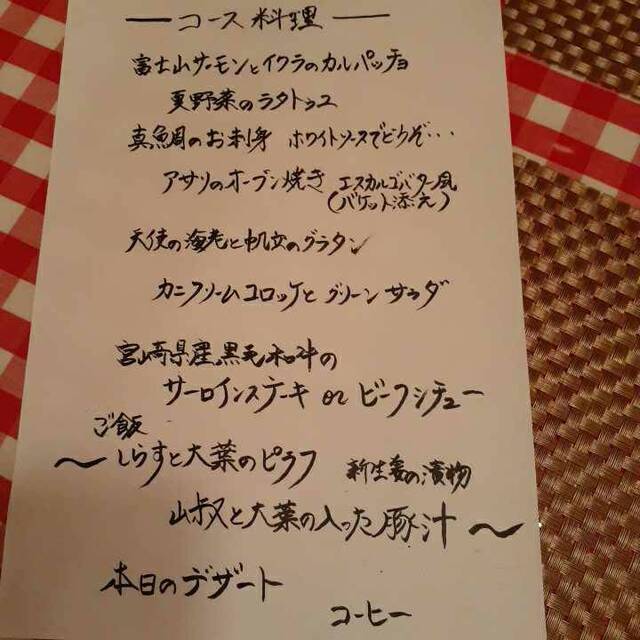 コース料理
富士山サーモンとイクラのカルパッチョ
夏野菜のラタトゥユ
真鯛のお刺身 ホワイトソースでどうぞ…
アサリのオーブン焼き エスカルゴバター風
(バケット添え)
天使の海老と帆立のグラタン
カニクリームコロッケとグリーンサラダ
宮崎県産黒毛和牛の
サーロインステーキ or ビーフシチュー
ご飯
〜しらすと大葉のピラフ 新生姜の漬物
山椒と大葉の入った豚汁〜
本日のデザート
コーヒー